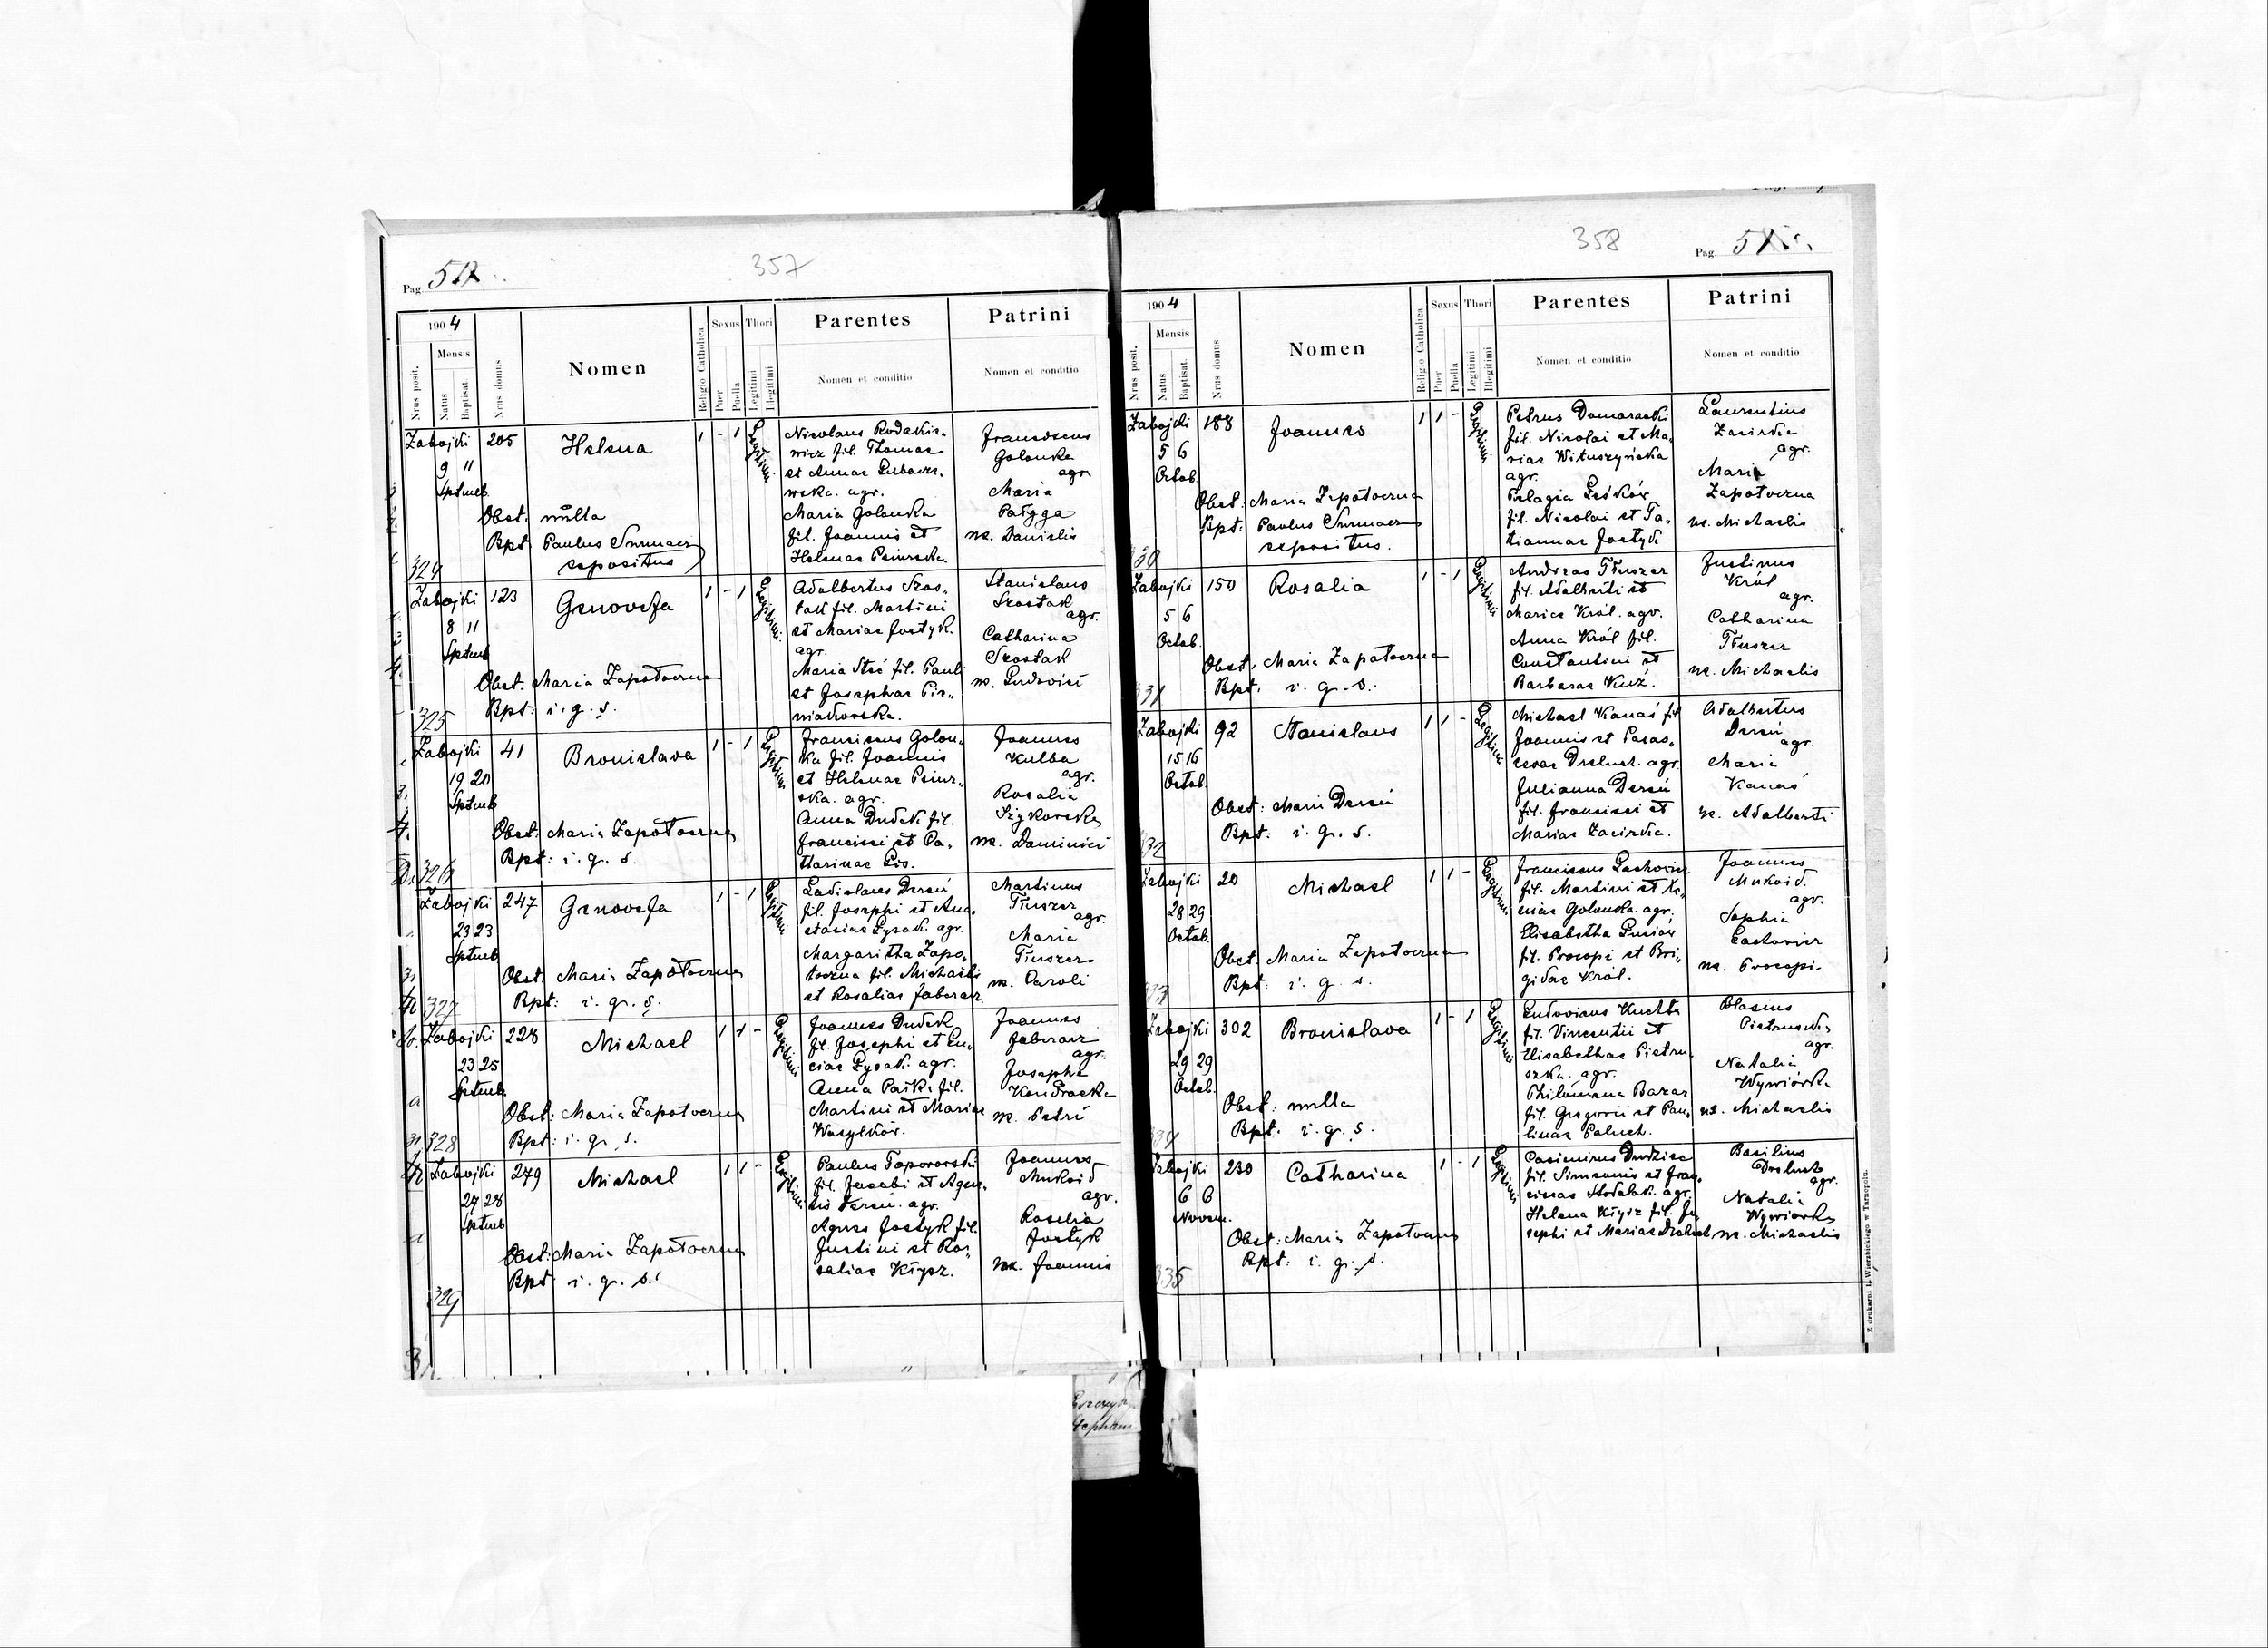 357
Pag.
1904
Nrus posit.
Mensis
Natus
Baptisat.
Nrus domus
Nomen
Religio Catholica
Sexus
Puer
Puella
Thori
Legitimi
Illegitimi
Parentes
Nomen et conditio
Patrini
Nomen et conditio
Zabojki 205 Helena 1 - 1 Legitimi
9 11
Septemb.
Nicolaus Rodakie-
wicz fil. Thomae
et Annae
agr.
Maria Golonka
fil. Joannis et
Helenae
Franciscus
Golonka
agr.
Maria
ux. Danielis
Obst. nulla
Bpt. Paulus
expositus
324
Zabojki 123 Genovefa 1 - 1 Legitimi
8 11
Septemb
Adalbertus Szos-
tak fil. Martini
et Mariae Jostyk.
agr.
Maria fil. Pauli
et Josephae
Stanislaus
Szostak
agr.
Catharina
Szostak
ux. Ludovici
Obst. Maria Zapotoczna
Bpt: i. q. s.
325
Zabojki 41 Bronislava 1 - 1 Legitimi
19 20
Septemb
Franciscus Golon-
ka fil. Joannis
et Helenae
agr.
Anna Dudek fil.
Francisci et Ca-
tharinae Lis.
Joannes
Kulba
agr.
Rosalia
ux. Dominici
Obst: Maria Zapotoczna
Bpt: i. q. s.
326
Zabojki 247 Genovefa 1 - 1 Legitimi
23 23
Septemb
Ladislaus Dereń
fil. Josephi et Ana-
stasiae Łysak. agr.
Margaritha Zapo-
toczna fil. Michaelis
et Rosaliae
Martinus
Tłuszcz
agr.
Maria
Tłuszcz
ux. Caroli
Obst: Maria Zapotoczna
Bpt: i. q. s.
327
Zabojki 228 Michael 1 1 - Legitimi
23 25
Septemb.
Joannes Dudek
fil. Josephi et Lu-
ciae Łysak. agr.
Anna fil.
Martini et Mariae
Wasylków.
Joannes
agr.
Josepha
ux. Petri
Obst: Maria Zapotoczna
Bpt: i. q. s.
328
Zabojki 279 Michael 1 1 - Legitimi
27 28
Septemb
Paulus Toporowski
fil. Jacobi et Agne-
tis Dereń. agr.
Agnes Jostyk fil.
Justini et Ro-
saliae Kłysz.
Joannes
Mukoid
agr.
Rosalia
Jostyk
ux. Joannis
Obst: Maria Zapotoczna
Bpt i. q. s.
329
358
Pag.
1904
Nrus posit.
Mensis
Natus
Baptisat.
Nrus domus
Nomen
Religio Catholica
Sexus
Puer
Puella
Thori
Legitimi
Illegitimi
Parentes
Nomen et conditio
Patrini
Nomen et conditio
Zabojki 188 Joannes 1 1 - Legitimi
5 6
Octob.
Petrus Domaracki
fil. Nicolai et Ma-
riae Wituszyńska
agr.
Pelagia Leśków
fil. Nicolai et Ta-
tiannae Jostyk
Laurentius
Zacirka
agr.
Maria
Zapotoczna
ux. Michaelis
Obst: Maria Zapotoczna
Bpt: Paulus
expositus.
330
Zabojki 150 Rosalia 1 - 1 Legitimi
5 6
Octob.
Andreas Tłuszcz
fil. Adalberti et
Mariae Król. agr.
Anna Król fil.
Constantini et
Barbarae Kuź.
Justinus
Król
agr.
Catharina
Tłuszcz
ux. Michaelis
Obst. Maria Zapotoczna
Bpt: i. q. s.
331
Zabojki 92 Stanislaus 1 1 - Legitimi
15 16
Octob.
Michael Kanaś fil
Joannis et Paras-
cevae agr.
Julianna Dereń
fil. Francisci et
Mariae Zacirka.
Adalbertus
Dereń
agr.
Maria
Kanaś
ux. Adalberti
Obst: Maria Dereń
Bpt: i. q. s.
332
Zabojki 20 Michael 1 1 - Legitimi
28 29
Octob.
Franciscus Lachowicz
fil. Martini et Xe-
niae Golonka. agr.
Elisabetha
fil. Procopi et Bri-
gidae Król.
Joannes
Mukoid.
agr.
Sophia
ux. Procopi.
Obst. Maria Zapotoczna
Bpt: i. q. s.
333
Zabojki 302 Bronislava 1 - 1 Legitimi
29 29
Octob.
Ludovicus Kuchta
fil. Vincentii et
Elisabethae Pietru-
szka. agr.
Philomena Bazar
fil. Gregorii et Pau-
linae Paluch.
Blasius
agr.
Natalia
Wywiórka
ux. Michaelis
Obst: nulla
Bpt: i. q. s.
334
Zabojki 230 Catharina 1 - 1 Legitimi
6 6
Novem.
Casimirus
fil. Simeonis et Fran-
ciscae agr.
Helena Kłysz fil. Jo-
sephi et Mariae
Basilius
agr.
Natalia
Wywiórka
ux. Michaelis
Obst: Maria Zapotoczna
Bpt: i. q. s.
335
Z drukarni L. Wierzbickiego w Tarnopolu.